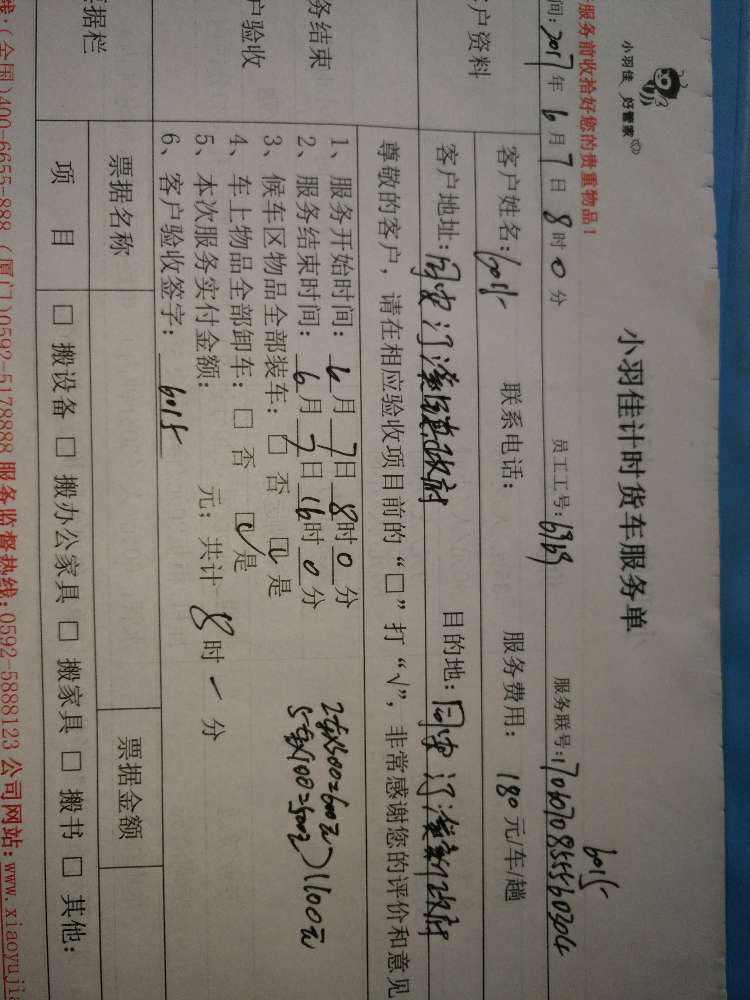 小羽佳 好管家
小羽佳计时货车服务单
服务前收拾好您的贵重物品！
间：2017年6月7日8时0分 员工工号：6969 服务联号：
6015
户资料
客户姓名：6015 联系电话： 服务费用：180元/车/趟
客户地址：同安 政府 目的地：同安 新政府
务结束
户验收
尊敬的客户，请在相应验收项目前的“□”打“√”，非常感谢您的评价和意见
1、服务开始时间：6月7日8时0分
2、服务结束时间：6月7日16时0分
3、候车区物品全部装车：□否 ☑是
4、车上物品全部卸车：□否 ☑是
5、本次服务实付金额： 元；共计8时一分
6、客户验收签字：6015
1100元
据栏
票据名称 票据金额
项目 □搬设备 □搬办公家具 □搬家具 □搬书 □其他：
线：(全国)400-6655-888（厦门)0592-5178888 服务监督热线：0592-5888123 公司网站：www.xiaoyujia